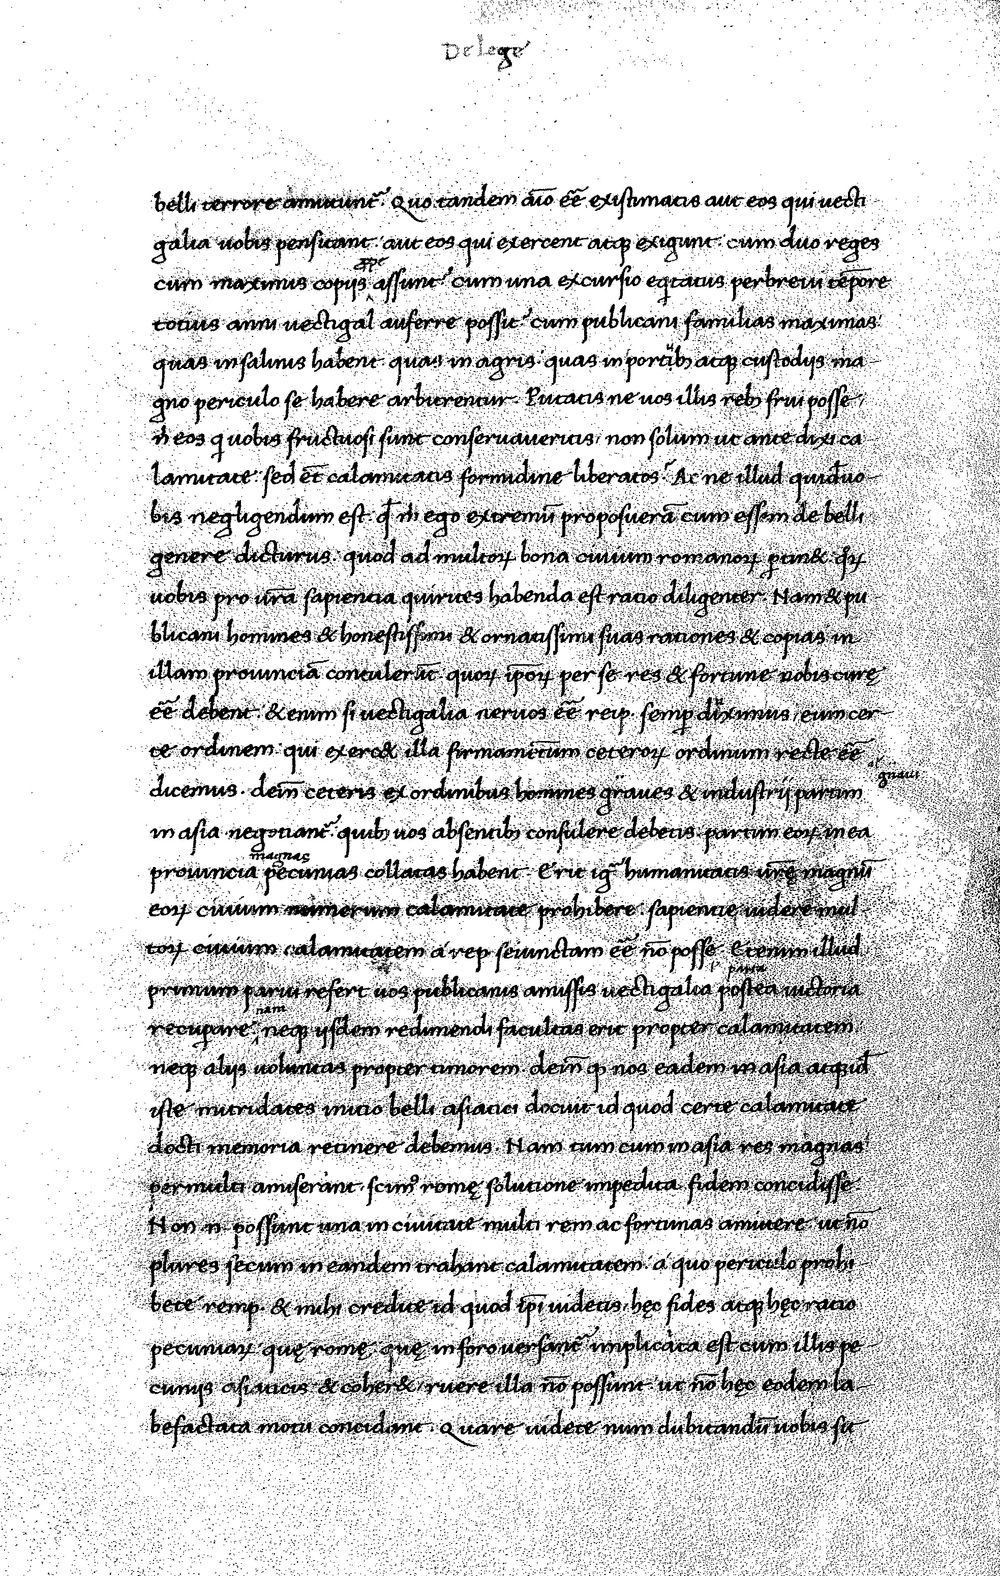 De lege
belli terrore amittunt̃. Quo tandem aı̅o ee̅ existimatis aut eos qui vecti
galia vobis pensitant. aut eos qui exercent atqꝫ exigunt. cum duo reges
cum maximis copijs ꝓpe assunt? cum una excursio eq̇tatus perbrevi te̅pore
totius anni vectigal auferre possit? cum publicani familias maximas
quas in salinis habent quas in agris quas in portibꝫ atqꝫ custodijs ma
gno periculo se habere arbitrentur. Putatis ne vos illis rebꝫ frui posse
n̄ eos q̇ vobis fructuosi sunt conservaveritis, non solum ut ante dixi ca
lamitate sed et̅ calamitatis formidine liberatos? Ac ne illud quid̅ vo
bis negligendum est. q̅ m̅ ego extremu̅ proposuera̅ cum essem de belli
genere dicturus. quod ad multoꝝ bona civium romanoꝝ ꝑtin& q̅ꝝ
vobis pro vr̅a sapientia quirites habenda est ratio diligenter. Nam & pu
blicani homines & honestissimi & ornatissimi suas rationes & copias in
illam provincia̅ contulerut̅. quoꝝ ip̅oꝝ per se res & fortune vobis curę
ee̅ debent. & enim si vectigalia nervos ee̅ reip. semꝑ diximus, eum cer
te ordinem qui exerc& illa firmamentum ceteroꝝ ordinum recte ee̅
dicemus. dein̅ ceteris ex ordinibus homines graves & industrij partim
gnavi
in asia negotiant̃. quibꝫ vos absentibꝫ consulere debetis. partim eoꝝ in ea
provincia magnas pecunias collatas habent. Erit ig̃ humanitatis vr̅ę magnu̅
eoꝝ civium numerum calamitate prohibere. sapientię videre mul
toꝝ civium calamitatem a rep seiunctam ee̅ no̅ posse. Etenim illud
primum parvi refert vos publicanis amissis vectigalia postea victoria
recuꝑare. nam neqꝫ ijsdem redimendi facultas erit propter calamitatem
neqꝫ alijs voluntas propter timorem. dein̅ ꝙ nos eadem in asia atqꝫ id̅
iste mitridates initio belli asiatici docuit id quod certe calamitate
docti memoria retinere debemus. Nam tum cum in asia res magnas
permulti amiserant. scimꝰ romę solutione impedita fidem concidisse.
Non n̄ possunt una in civitate multi rem ac fortunas amittere ut no̅
plures secum in eandem trahant calamitatem. a quo periculo prohi
bete remp. & mihi credite id quod ip̅i videtis, hęc fides atqꝫ hęc ratio
pecuniaꝝ quę romę. quę in foro versant̃ implicata est cum illis pe
cunijs asiaticis & coher&. ruere illa no̅ possunt. ut no̅ hęc eodem la
befactata motu concidant. Quare videte num dubitandu̅ vobis sit